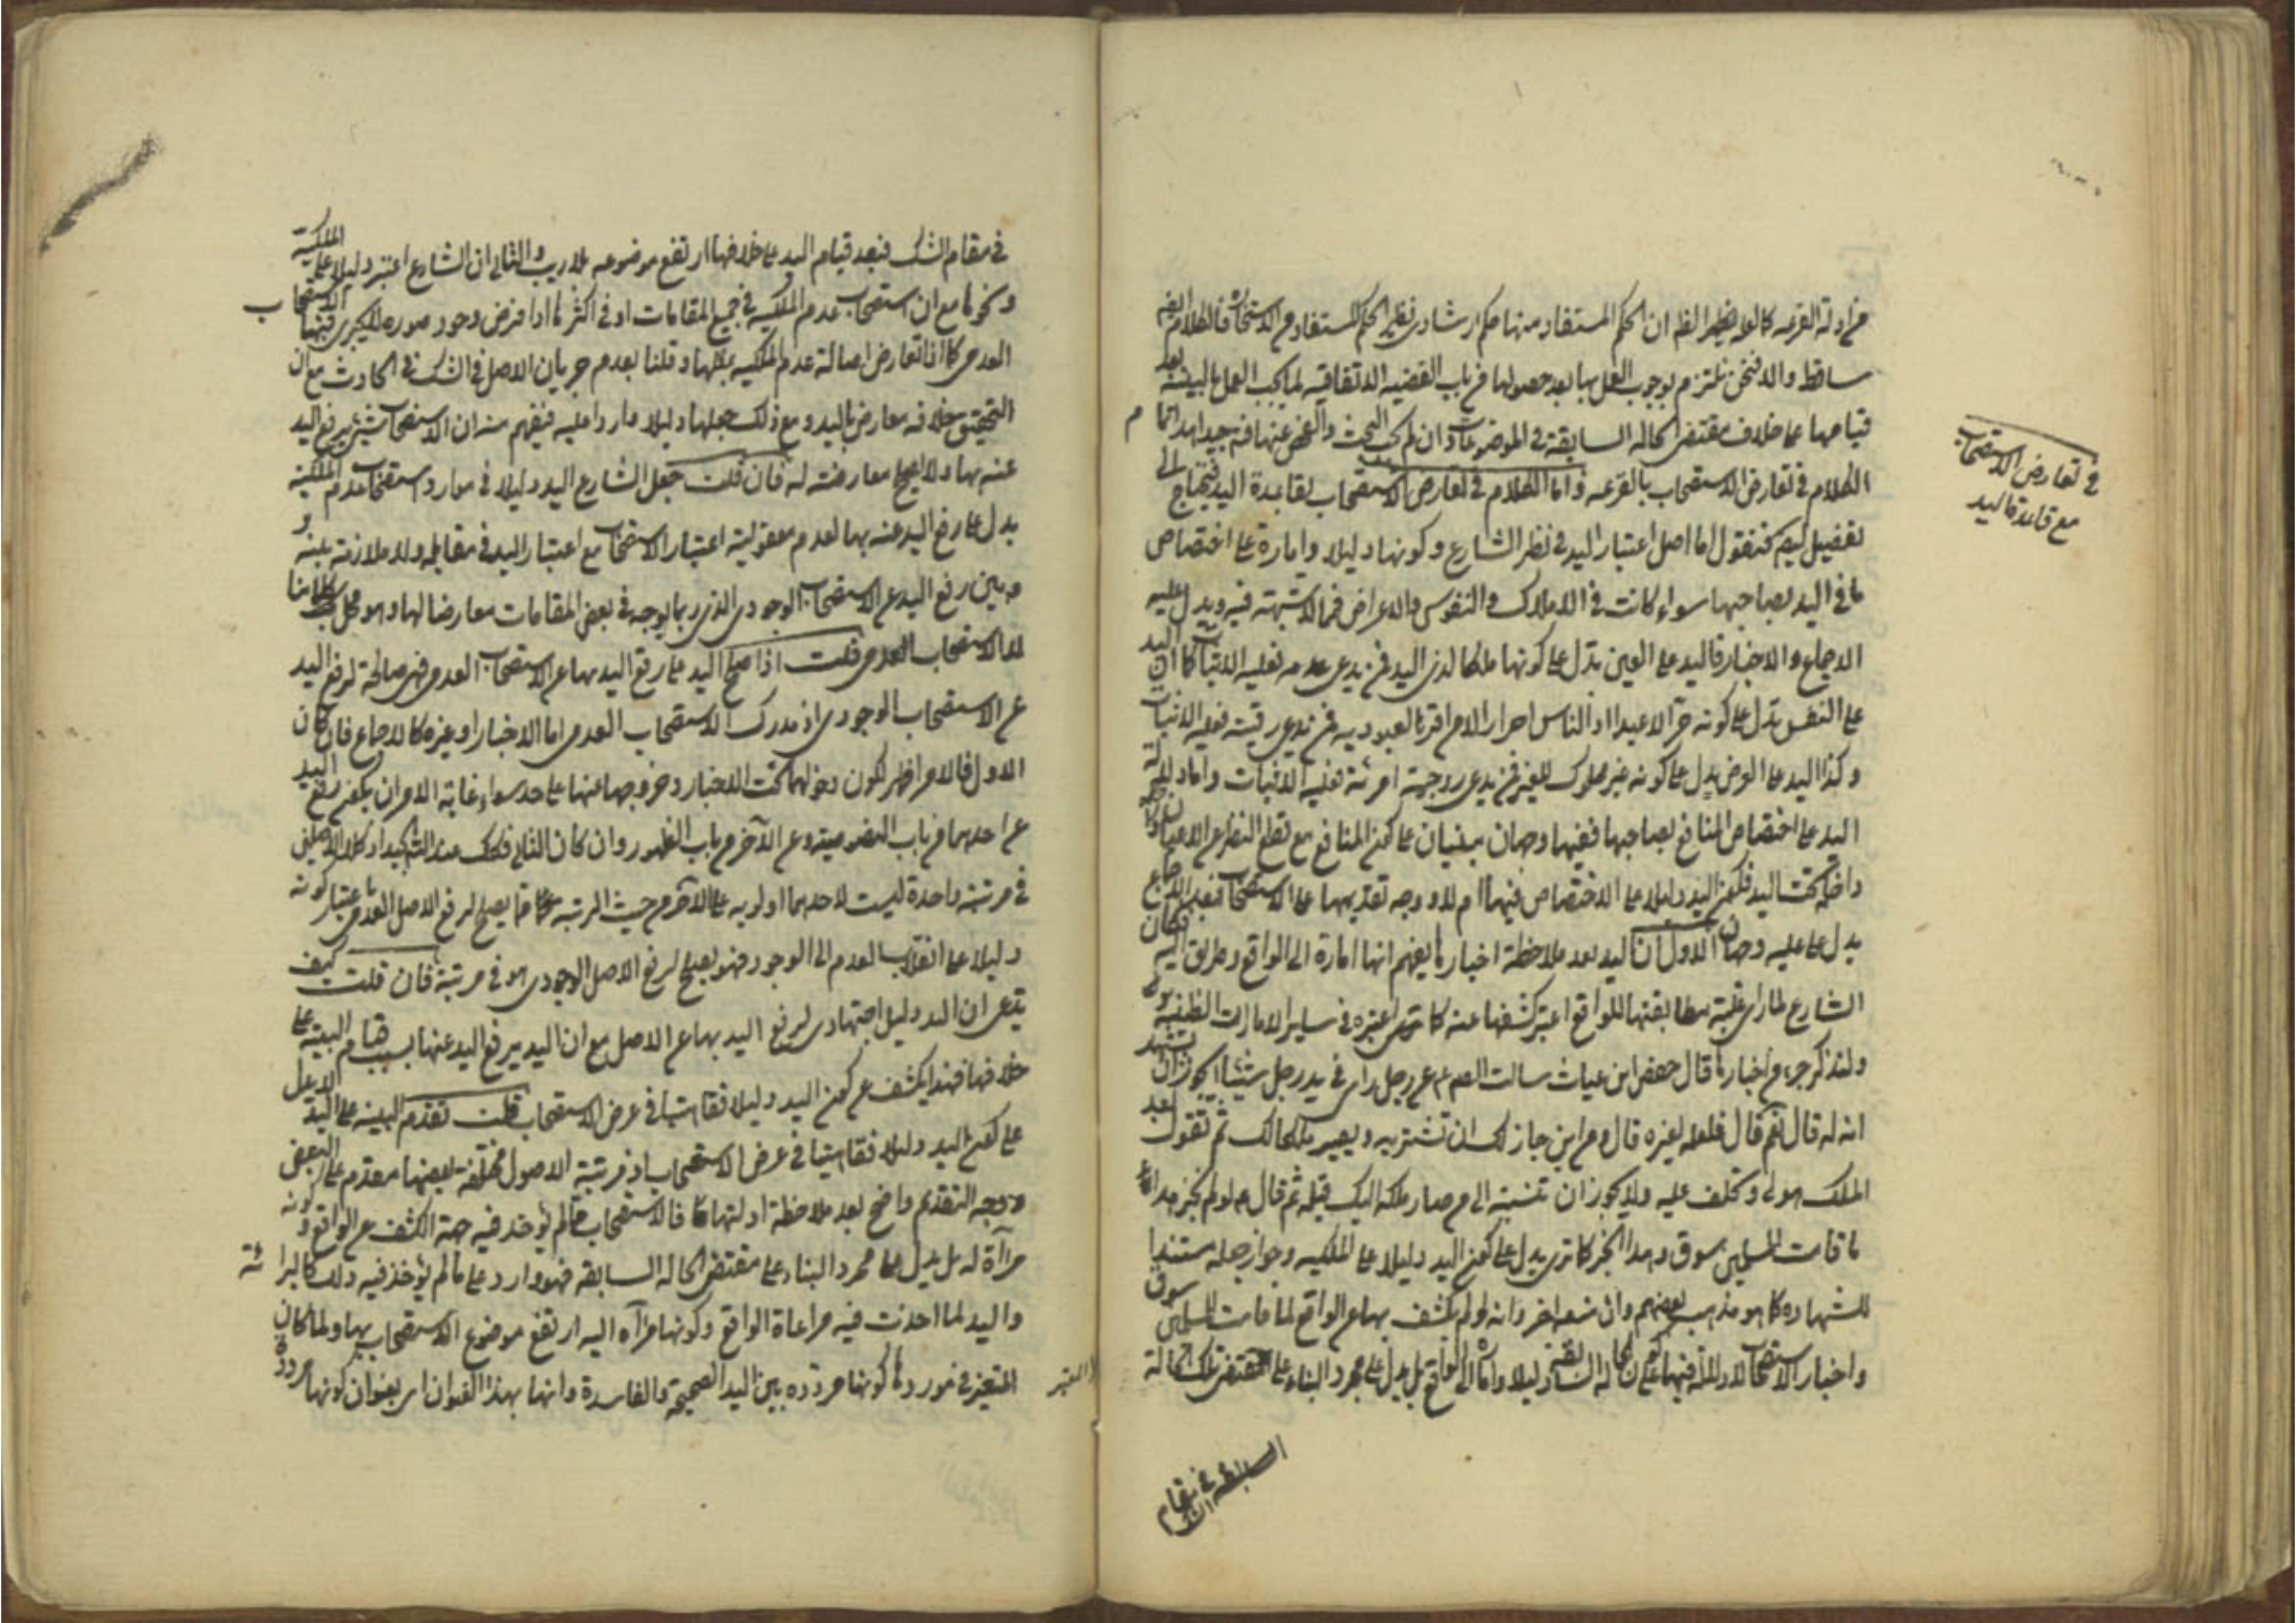 من ادلة القرعه كما لو لا يخلوا لظ ان الحكم المستفاد منها حكم ارشادى نظير الحكم المستفاد من الاستخاره فالكلام ايضا
ساقط والا فنحن نلتزم بوجوب العمل بها بعد حصولها من باب القضيه الاتفاقيه لما يجب العمل بالبينة بعد
قيامها على خلاف مقتضى الحاله السابقة فى الموضوعات وان لم يجب البحث والفحص عنها فتجيد هذا تمام
الكلام فى تعارض الاستصحاب بالقرعه واما الكلام فى تعارض الاستصحاب لقاعدة اليد فيحتاج الى
تفصيل فنقول اما اصل اعتبار اليد فى نظر الشارع وكونها دليلا وامارة على اختصاص
ما فى اليد بصاحبها سواء كانت فى الاملاك والنفوس والاعراض فمما لا شبهة فيه ويدل عليه
الاجماع والاخبار فاليد على العين تدل على كونها ملكا لذى اليد فمن يدعى عدمه فعليه الاثبات كما ان اليد
على النفس تدل على كونه حرا لا عبدا اذ الناس احرار الا من اقر بالعبوديه فمن يدعى رقيته فعليه الاثبات
وكذا اليد على العرض يدل على كونه غير مملوك للغير فمن يدعى زوجية امرئة فعليه الاثبات واما دلالة
اليد على اختصاص المنافع بصاحبها ففيها وجهان مبنيان على كون المنافع مع قطع النظر عن الاعيان
داخلة تحت اليد فلكون اليد دليلا على الاختصاص فيها ام لا ووجه تقديمها على الاستصحاب فبعد الاجماع
يدل على عليه وجهان الاول ان اليد بعد ملاحظة اخبارها يفهم انها امارة الى الواقع وطريق اليه فكان
الشارع لما راى غلبة مطابقتها للواقع اعتبر كشفها عنه كما ترى اعتبره فى ساير الامارات الظنية
ولنذكر جزء من اخبارها قال حفص ابن غياث سالت الصم عم عن رجل راى فى يد رجل شيئا ايجوز ان يشهد
انه له قال نعم قال فلعله لغيره قال ومن اين جاز لك ان تشتريه ويصير ملكا لك ثم تقول بعد
الملك هو لى وتحلف عليه ولا يجوز ان تنسبه الى من صار ملكه اليك قبله ثم قال عم لو لم يجز هذا
ما قامت للمسلمين سوق وهذا الخبر كما ترى يدل على كون اليد دليلا على الملكيه وجواز جعله مستندا
للشهاده كما هو مذهب بعضهم وان منعه اخر وانه لو لم يكشف بها عن الواقع لما قامت للمسلمين سوق
واخبار الاستصحاب لا دلالة فيها على كون الحاله السابقة دليلا وامارة الى الواقع بل يدل على مجرد البناء على مقتضى تلك الحالة
السابقة فى مقام
فى تعارض الاستصحاب
مع قاعدة اليد
فى مقام الشك فبعد قيام اليد على خلافها ارتفع موضوعه بلا ريب والثانى ان الشارع اعتبر دليلا على الملكية
ونحوها مع ان استصحاب عدم الملكيه فى جميع المقامات او فى اكثرها اذا فرض وجود صوره لا يجرى فيها الاستصحاب
العدمى كما اذا تعارض اصالة عدم الملكيه بمثلها وقلنا بعدم جريان الاصل فى الشك فى الحادث مع ان
التحقيق خلافه معارض باليد ومع ذلك جعلها دليلا واردا عليه فيفهم منه ان الاستصحاب شيئ يرفع اليد
عنه بها ولا يصح معارضته له فان قلت جعل الشارع اليد دليلا فى موارد استصحاب عدم الملكية
يدل على رفع اليد عنه بها لعدم معقولية اعتبار الاستصحاب مع اعتبار اليد فى مقابله ولا ملازمة بينه و
بين رفع اليد عن الاستصحاب الوجودى الذى ربما يوجد فى بعض المقامات معارضا لها وهو محل كلامنا
لا الاستصحاب العدمى قلت اذا صلح اليد على رفع اليد بها عن الاستصحاب العدمى فهى صالحة لرفع اليد
عن الاستصحاب الوجودى اذ مدرك الاستصحاب العدمى اما الاخبار او غيره كالاجماع فان كان
الاول فالامر اظهر لكون دخولهما تحت الاخبار وخروجهما عنها على حد سواء غاية الامر ان يكون رفع اليد
عن احدهما من باب النصوصية وعن الآخر من باب الظهور وان كان الثانى فكك عند التاكيد اذ كلا الاصلين
فى مرتبة واحدة ليست لاحدهما اولويه على الآخر من حيث المرتبة فكما يصلح لرفع الاصل العدمى باعتبار كونه
دليلا على انقلاب العدم الى الوجود فهو يصلح لرفع الاصل الوجودى هو فى مرتبة فان قلت كيف
تدعى ان اليد دليل اجتهادى لرفع اليد بها عن الاصل مع ان اليد يرفع اليد عنها بسبب قيام البينة على
خلافها فهذا يكشف عن كون اليد دليلا فقاهتيا فى عرض الاستصحاب قلت تقدم البينة على اليد لا يدل
على كون اليد دليلا فقاهتيا فى عرض الاستصحاب اذ مرتبة الاصول مختلفة بعضها مقدم على البعض
ووجه التقديم واضح بعد ملاحظة ادلتها فالاستصحاب لم يؤخذ فيه جهة الكشف عن الواقع وكونه
مراآة له بل يدل على مجرد البناء على مقتضى الحاله السابقه فهو وارد على ما لم يؤخذ فيه ذلك كالبرائة
واليد لما اخذت فيه مراعاة الواقع وكونها مراآه اليه ارتفع موضوع الاستصحاب بها ولما كان
المتيقن فى موردها كونها مرددة بين اليد الصحيحة والفاسدة وانها بهذا العنوان اى بعنوان كونها مرددة